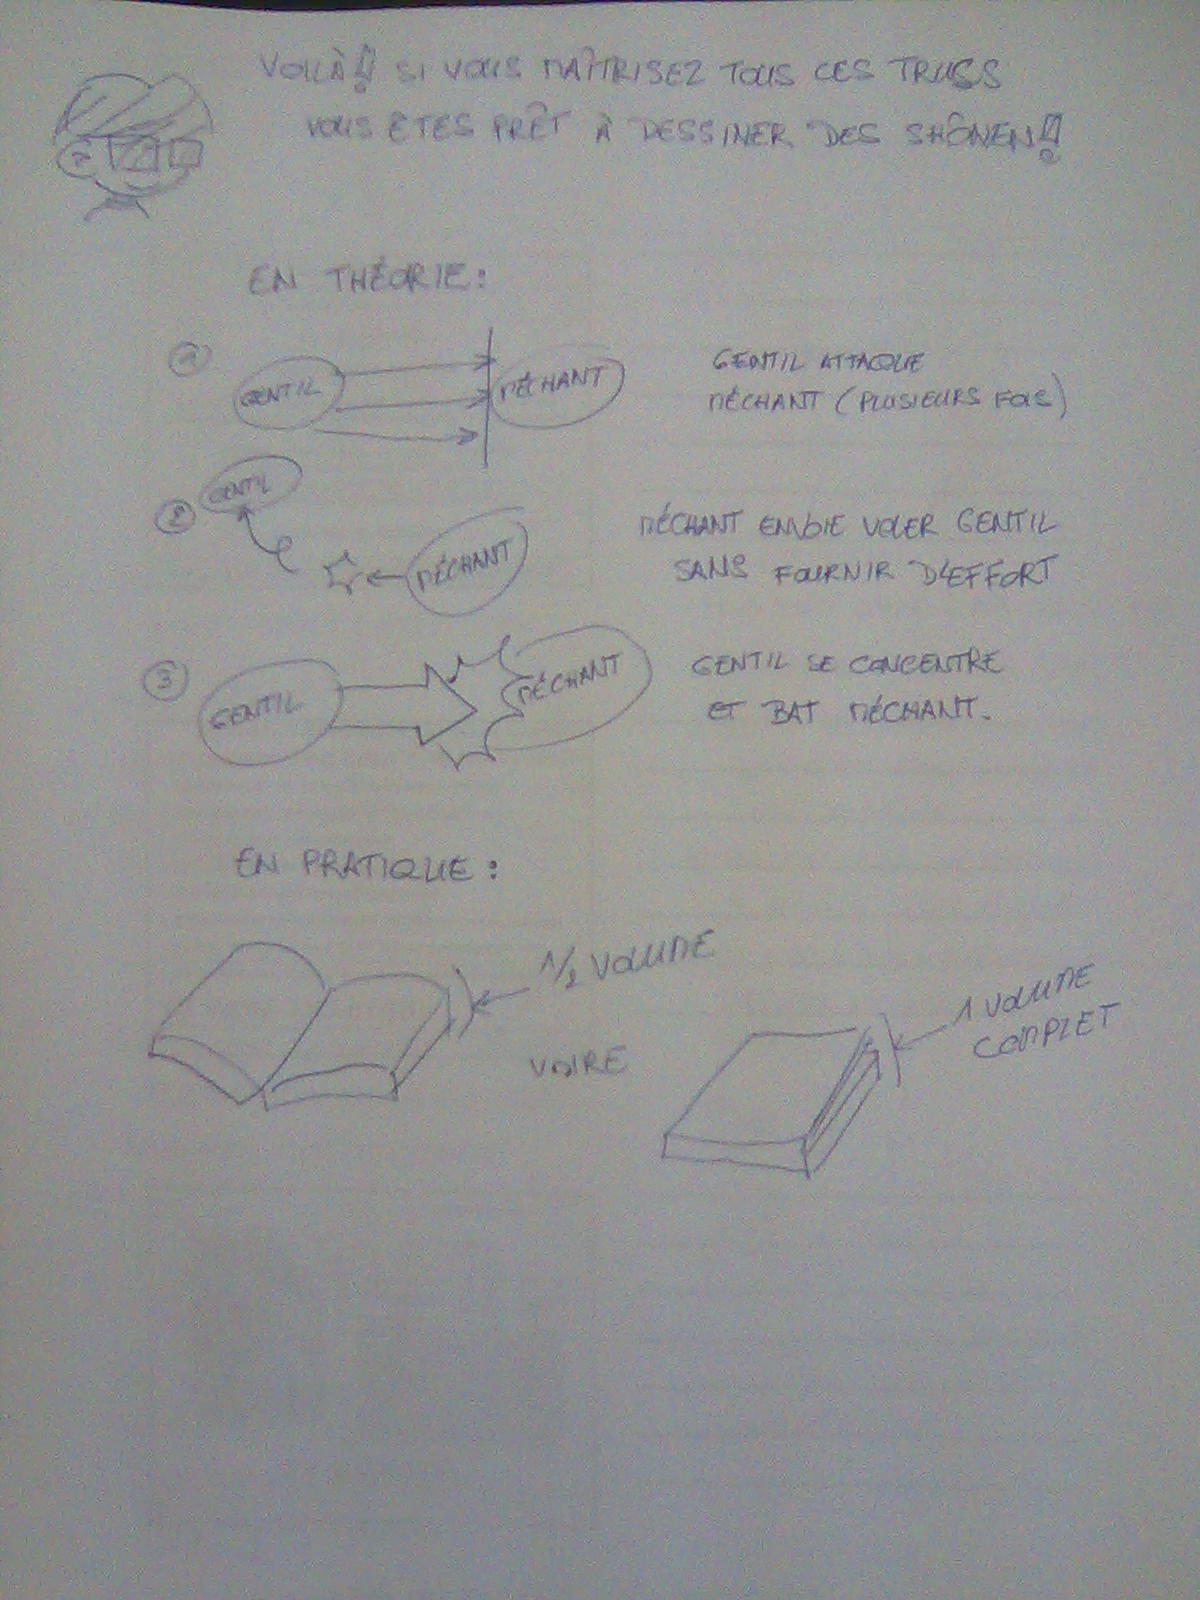 VOILÀ!! SI VOUS MAÎTRISEZ TOUS CES TRUCS
VOUS ÊTES PRÊT À DESSINER DES SHÔNEN!!
EN THÉORIE:
1
GENTIL
MÉCHANT
GENTIL ATTAQUE
MÉCHANT (PLUSIEURS FOIS)
2
GENTIL
MÉCHANT
MÉCHANT ENVOIE VOLER GENTIL
SANS FOURNIR D'EFFORT
3
GENTIL
MÉCHANT
GENTIL SE CONCENTRE
ET BAT MÉCHANT.
EN PRATIQUE:
1/2 VOLUME
VOIRE
1 VOLUME
COMPLET